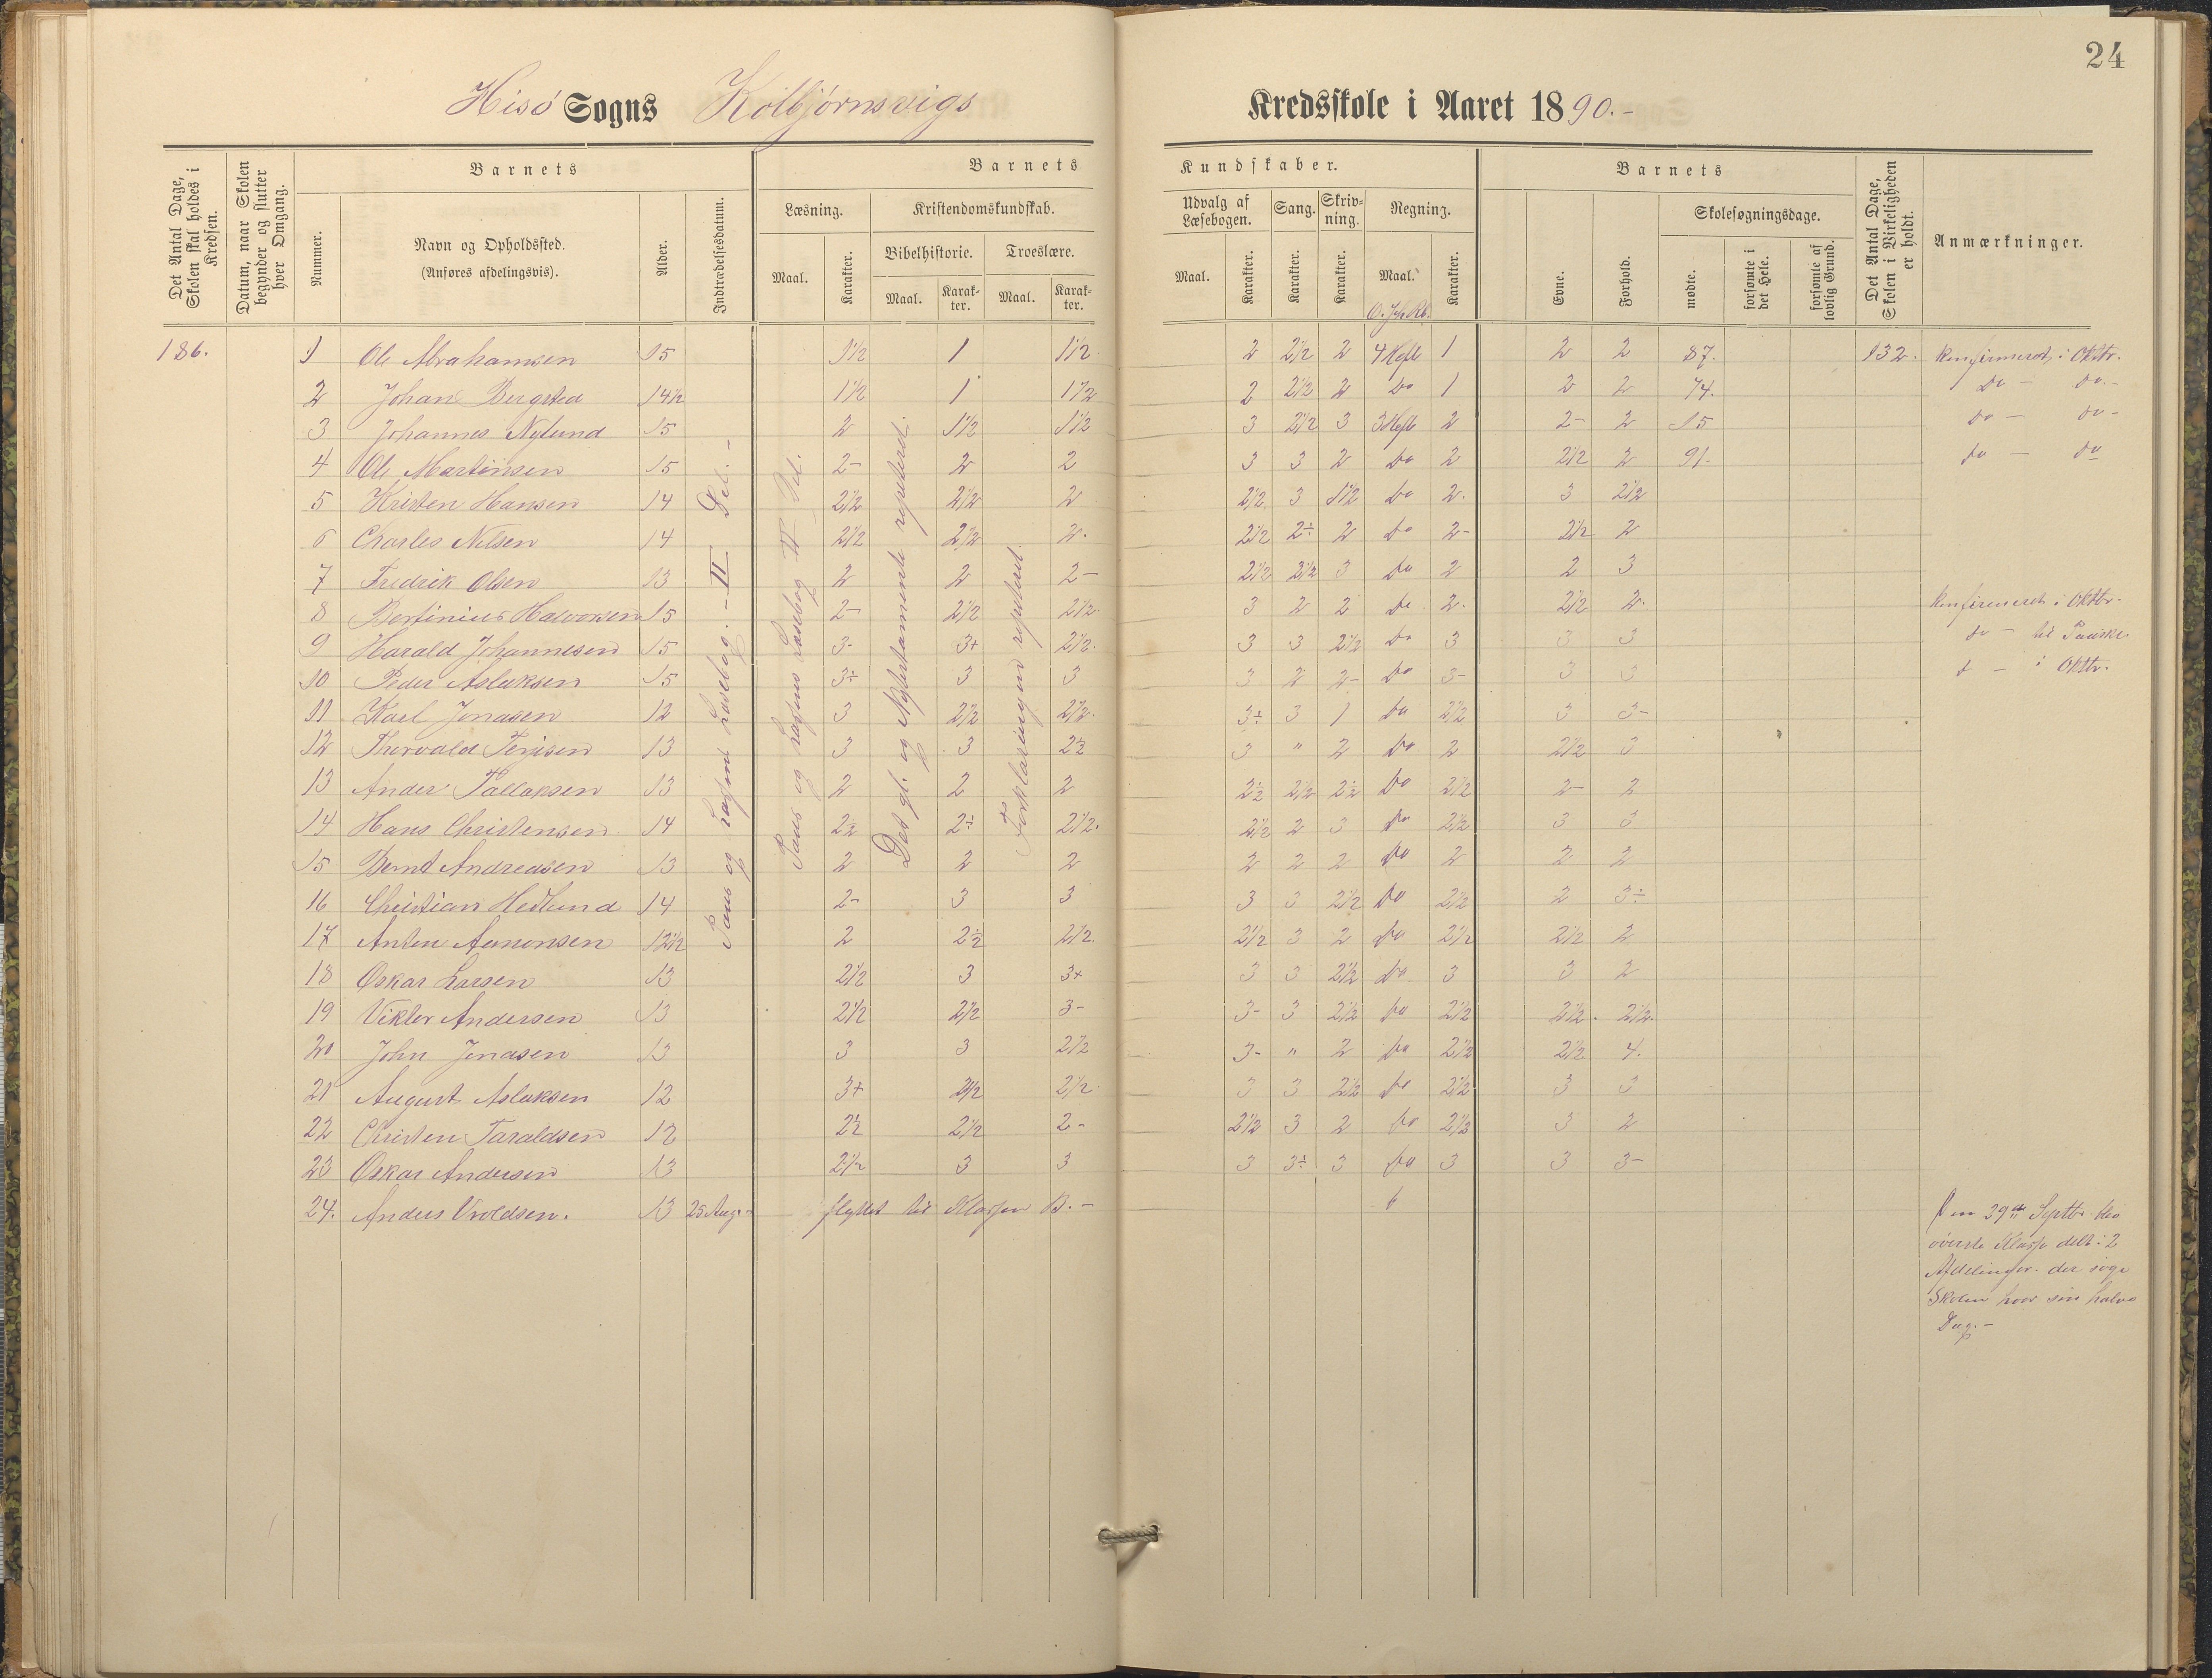 24
Hisø Sogns Kolbjørnsvigs Kredsskole i Aaret 1890.-
Det Antal Dage, Skolen skal holdes i Kredsen.
Datum, naar Skolen begynder og slutter hver Omgang.
Barnets
Nummer.
Navn og Opholdssted.
(Anføres afdelingsvis).
Alder.
Indtrædelsesdatum.
Barnets Kundskaber.
Læsning.
Maal.
Karakter.
Kristendomskundskab.
Bibelhistorie.
Maal.
Karakter.
Troeslære.
Maal.
Karakter.
Udvalg af Læsebogen.
Maal.
Karakter.
Sang.
Karakter.
Skrivning.
Karakter.
Regning.
Maal.
Karakter.
Barnets
Evne.
Forhold.
Skolesøgningsdage.
mødte.
forsømte i det Hele.
forsømte af lovlig Grund.
Det Antal Dage, Skolen i Virkeligheden er holdt.
Anmærkninger.
186. 1 Ole Abrahamsen 15 1½ 1 1½ 2 2½ 2 4 Rgl 1 2 2 87. 132. Konfirmeret i Oktbr.
2 Johan Bergsted 14½ 1½ 1 1½ 2 2½ 2 do 1 2 2 74. do - do.-
3 Johannes Nylund 15 2 1½ 1½ 3 2½ 3 3 Rgl 2 2- 2 15 do - do -
4 Ole Martinsen 15 2- 2 2 3 3 2 do 2 2½ 2 91- do - do
5 Kristen Hansen 14 2½ 2½ 2 2½ 3 1½ do 2. 3 2½
6 Charles Nilsen 14 2½ 2½ 2. 2½ 2÷ 2 do 2- 2½ 2
7 Fredrik Olsen 13 2 2 2- 2½ 2½ 3 do 2 2 3
8 Bertinius Halvorsen 15 2- 2½ 2½. 3 2 2 do. 2. 2½ 2. Konfirmeret i Oktbr.
9 Harald Johannesen 15 3- 3+ 2½. 3 3 2½ do 3 3 3 do - til Paaske.
10 Peder Aslaksen 15 3÷ 3 3 3 2 2- do 3- 3 3 d - i Oktbr.
11 Karl Jonasen 12 3 2½ 2½. 3÷ 3 1 do 2½ 3 3-
12 Thorvald Terjesen 13 3 3 2½ 3 " 2 do 2 2½ 3
13 Anders Tallaksen 13 2 2 2 2½ 2½ 2½ do 2½ 2- 2
14 Hans Christensen 14 2½ 2÷ 2½. 2½ 2 3 do 2½ 3 3
15 Bernt Andreasen 13 2 2 2 2 2 2 do 2 2 2
16 Christian Hedlund 14 2- 3 3 3 3 2½ do 2½ 2 3÷
17 Anton Aanonsen 12½ 2 2½ 2½. 2½ 3 2 do 2½ 2½ 2
18 Oskar Larsen 13 2½ 3 3+ 3 3 2½ do 3 3 2
19 Viktor Andersen 13 2½ 2½ 3- 3- 3 2½ do 2½ 2½. 2½.
20 John Jonasen 13 3 3 2½ 3- " 2 do 2½ 2½ 4.
21 August Aslaksen 12 3+ 2½ 2½. 3 3 2½ do 2½ 3 3
22 Christen Taraldsen 12 2½ 2½ 2- 2½ 3 2 do 2½ 3 2
23 Oskar Andersen 13 2½ 3 3 3 3÷ 3 do 3 3 3-
24. Anders Vroldsen. 13 25 Aug.- flyttet til Klassen B.-
Paus og Lassens Læsebog. - II Del. -
Paus og Lassens Læsebog II Del.
Det gl. og Nytestamente repeteret.
Forklaringen repeteret.
Den 29de Septbr. blev
øverste Klasse delt i 2
Afdelinger. der søge
Skolen hver sin halve
Dag.-